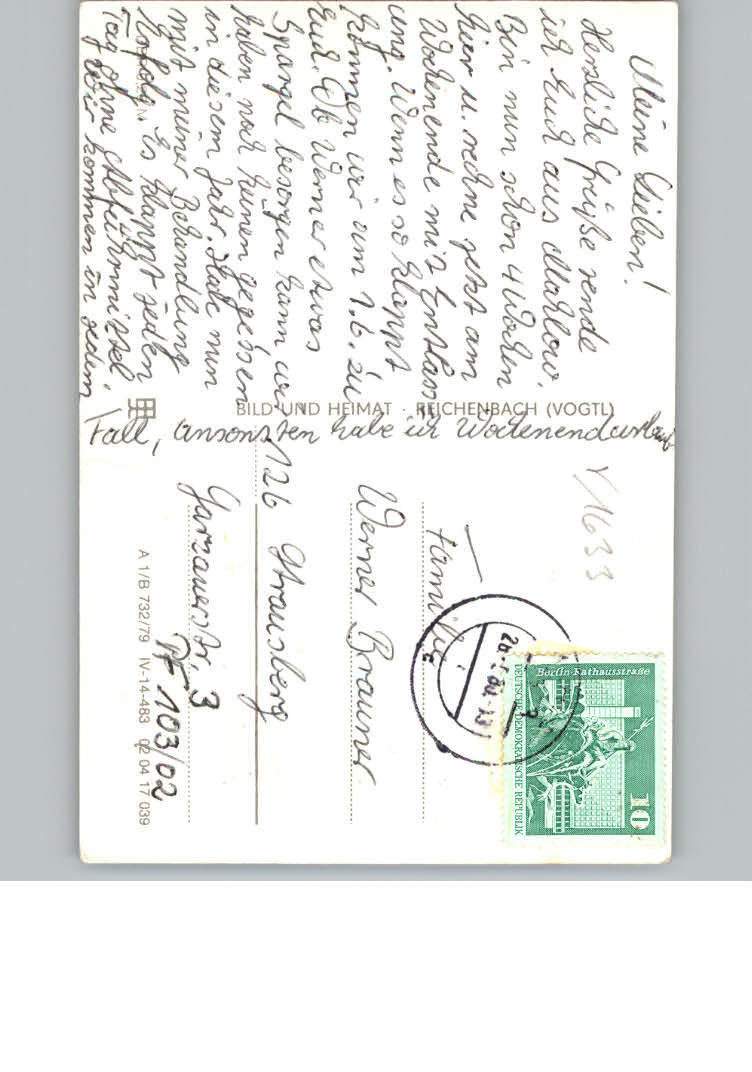 Meine Lieben!
Herzliche Grüße sende
ich Euch aus Marlow.
Bin nun schon 4 Wochen
hier u. rechne jetzt am
Wochenende mit Entlass-
ung. Wenn es so klappt
können wir am 1.6. zu
Euch. Ob Werner etwas
Spargel besorgen kann, wir
haben noch keinen gegessen
in diesem Jahr. Habe nun
mit meiner Behandlung
Erfolg. Es klappt jeden
Tag ohne Abführmittel.
Wir kommen in jedem
Fall, ansonsten habe ich Wochenendurlaub
BILD UND HEIMAT · REICHENBACH (VOGTL)
V1633
Familie
Werner Brauner
126 Strausberg
Garzauerstr. 3
PF 103/02
A 1/B 732/79 IV-14-483 02 04 17 039
Berlin-Rathausstraße
DEUTSCHE DEMOKRATISCHE REPUBLIK
10